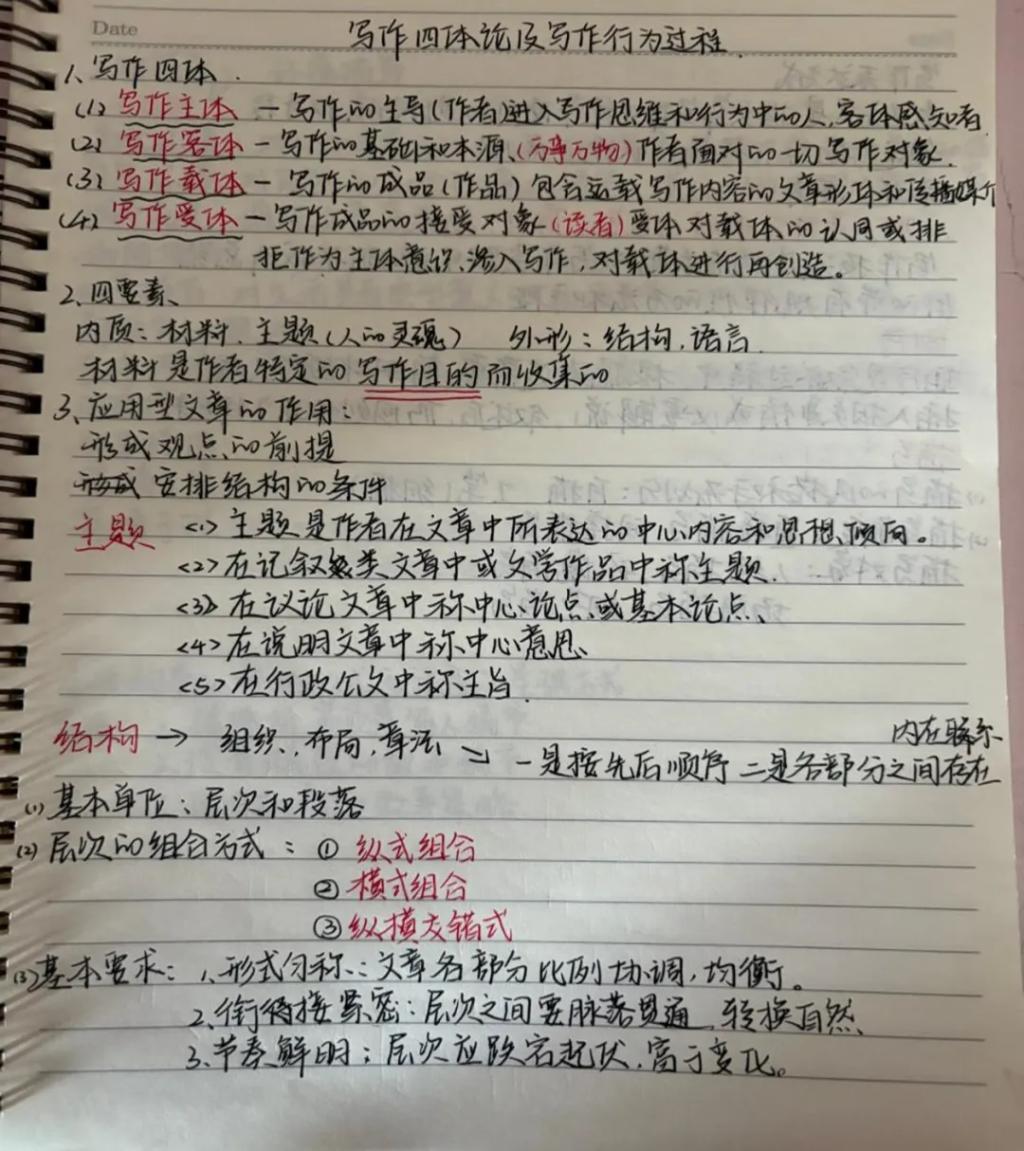 Date
写作四体论及写作行为过程
1、写作四体.
(1) 写作主体 — 写作的主导(作者)进入写作思维和行为中的人,客体感知者
(2) 写作客体 — 写作的基础和本源、(万事万物)作者面对的一切写作对象.
(3) 写作载体 — 写作的成品(作品)包含运载写作内容的文章形体和传播媒介
(4) 写作受体 — 写作成品的接受对象(读者)受体对载体的认同或排
拒作为主体意识、渗入写作,对载体进行再创造。
2、四要素、
内质:材料、主题(人的灵魂) 外形:结构、语言
材料是作者特定的写作目的而收集的
3、应用型文章的作用:
形成观点的前提
安排结构的条件
主题 <1> 主题是作者在文章中所表达的中心内容和思想倾向。
<2>在记叙类文章中或文学作品中称主题.
<3>在议论文章中称中心论点、或基本论点、
<4>在说明文章中称中心意思
<5>在行政公文中称主旨
内在联系
结构 → 组织、布局,章法 一是按先后顺序 二是各部分之间存在
(1)基本单位:层次和段落
(2)层次的组合方式:① 纵式组合
② 横式组合
③ 纵横交错式
(3)基本要求:1、形式匀称:文章各部分比例协调,均衡。
2、衔接紧密:层次之间要脉落贯通,转换自然、
3、节奏鲜明:层次应跌宕起伏,富于变化。